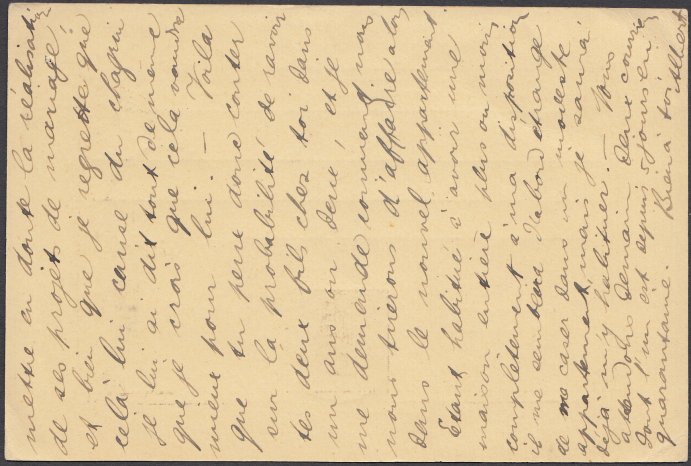 mettre en doute la réalisation
de ses projets de mariage,
et bien que je regrette que
cela lui cause du chagrin
je lui ai dit tout de même
que je crois que cela vaudra
mieux pour lui. — Voilà
que tu peux donc compter
sur la probabilité de ravoir
tes deux fils chez toi dans
un ans ou deux, et je
me demande comment nous
nous tirerons d'affaire alors
dans le nouvel appartement.
Etant habitué à avoir une
maison entière plus ou moins
complètement à ma disposition
il me semblera d'abord étrange
de me caser dans un modeste
appartement, mais je saurai
déjà m'y habituer. — Nous
attendons demain deux courriers
dont l'un est depuis 5 jours en
quarantaine. Bien à toi Albert